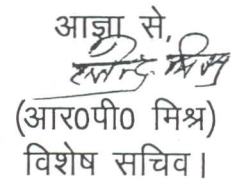 आज्ञा से,
(आर0पी0 मिश्र)
विशेष सचिव।